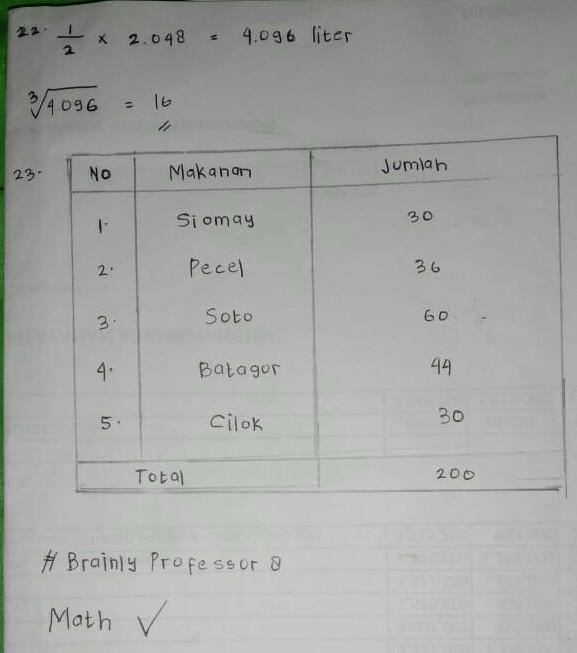 22. 1/2 x 2.048 = 4.096 liter
3√4.096 = 16
23. No Makanan Jumlah
1. Siomay 30
2. Pecel 36
3. Soto 60
4. Batagor 44
5. Cilok 30
Total 200
# Brainly Professor 8
Math ✓